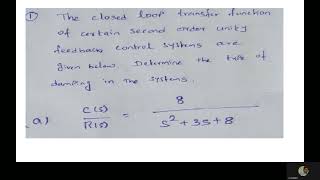 ① The closed loop transfer function
of certain second order unity
feedback control systems are
given below. Determine the type of
damping in the systems.
a) C(s)/R(s) = 8/(s²+3s+8)